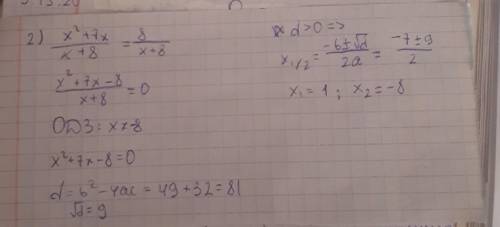 2) (x²+7x)/(x+8) = 8/(x+8)
(x²+7x-8)/(x+8) = 0
ОДЗ: x≠-8
x²+7x-8=0
d=b²-4ac = 49+32=81
√d=9
d>0 =>
x₁/₂ = (-b±√d)/2a = (-7±9)/2
x₁=1; x₂=-8